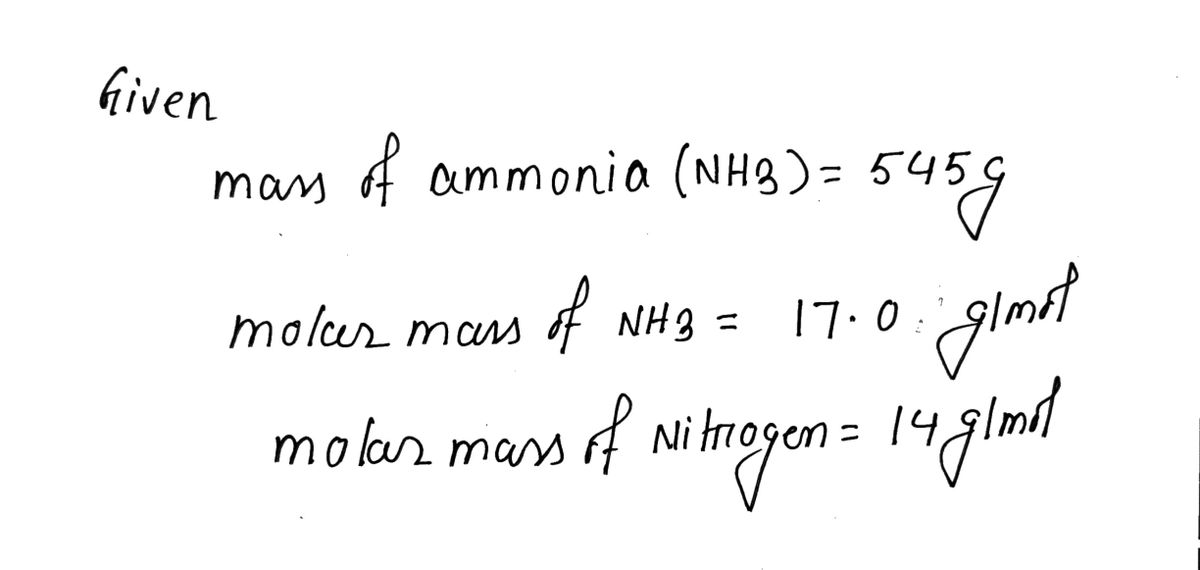 Given
mass of ammonia (NH3) = 545g
molar mass of NH3 = 17.0 g/mol
molar mass of Nitrogen = 14 g/mol